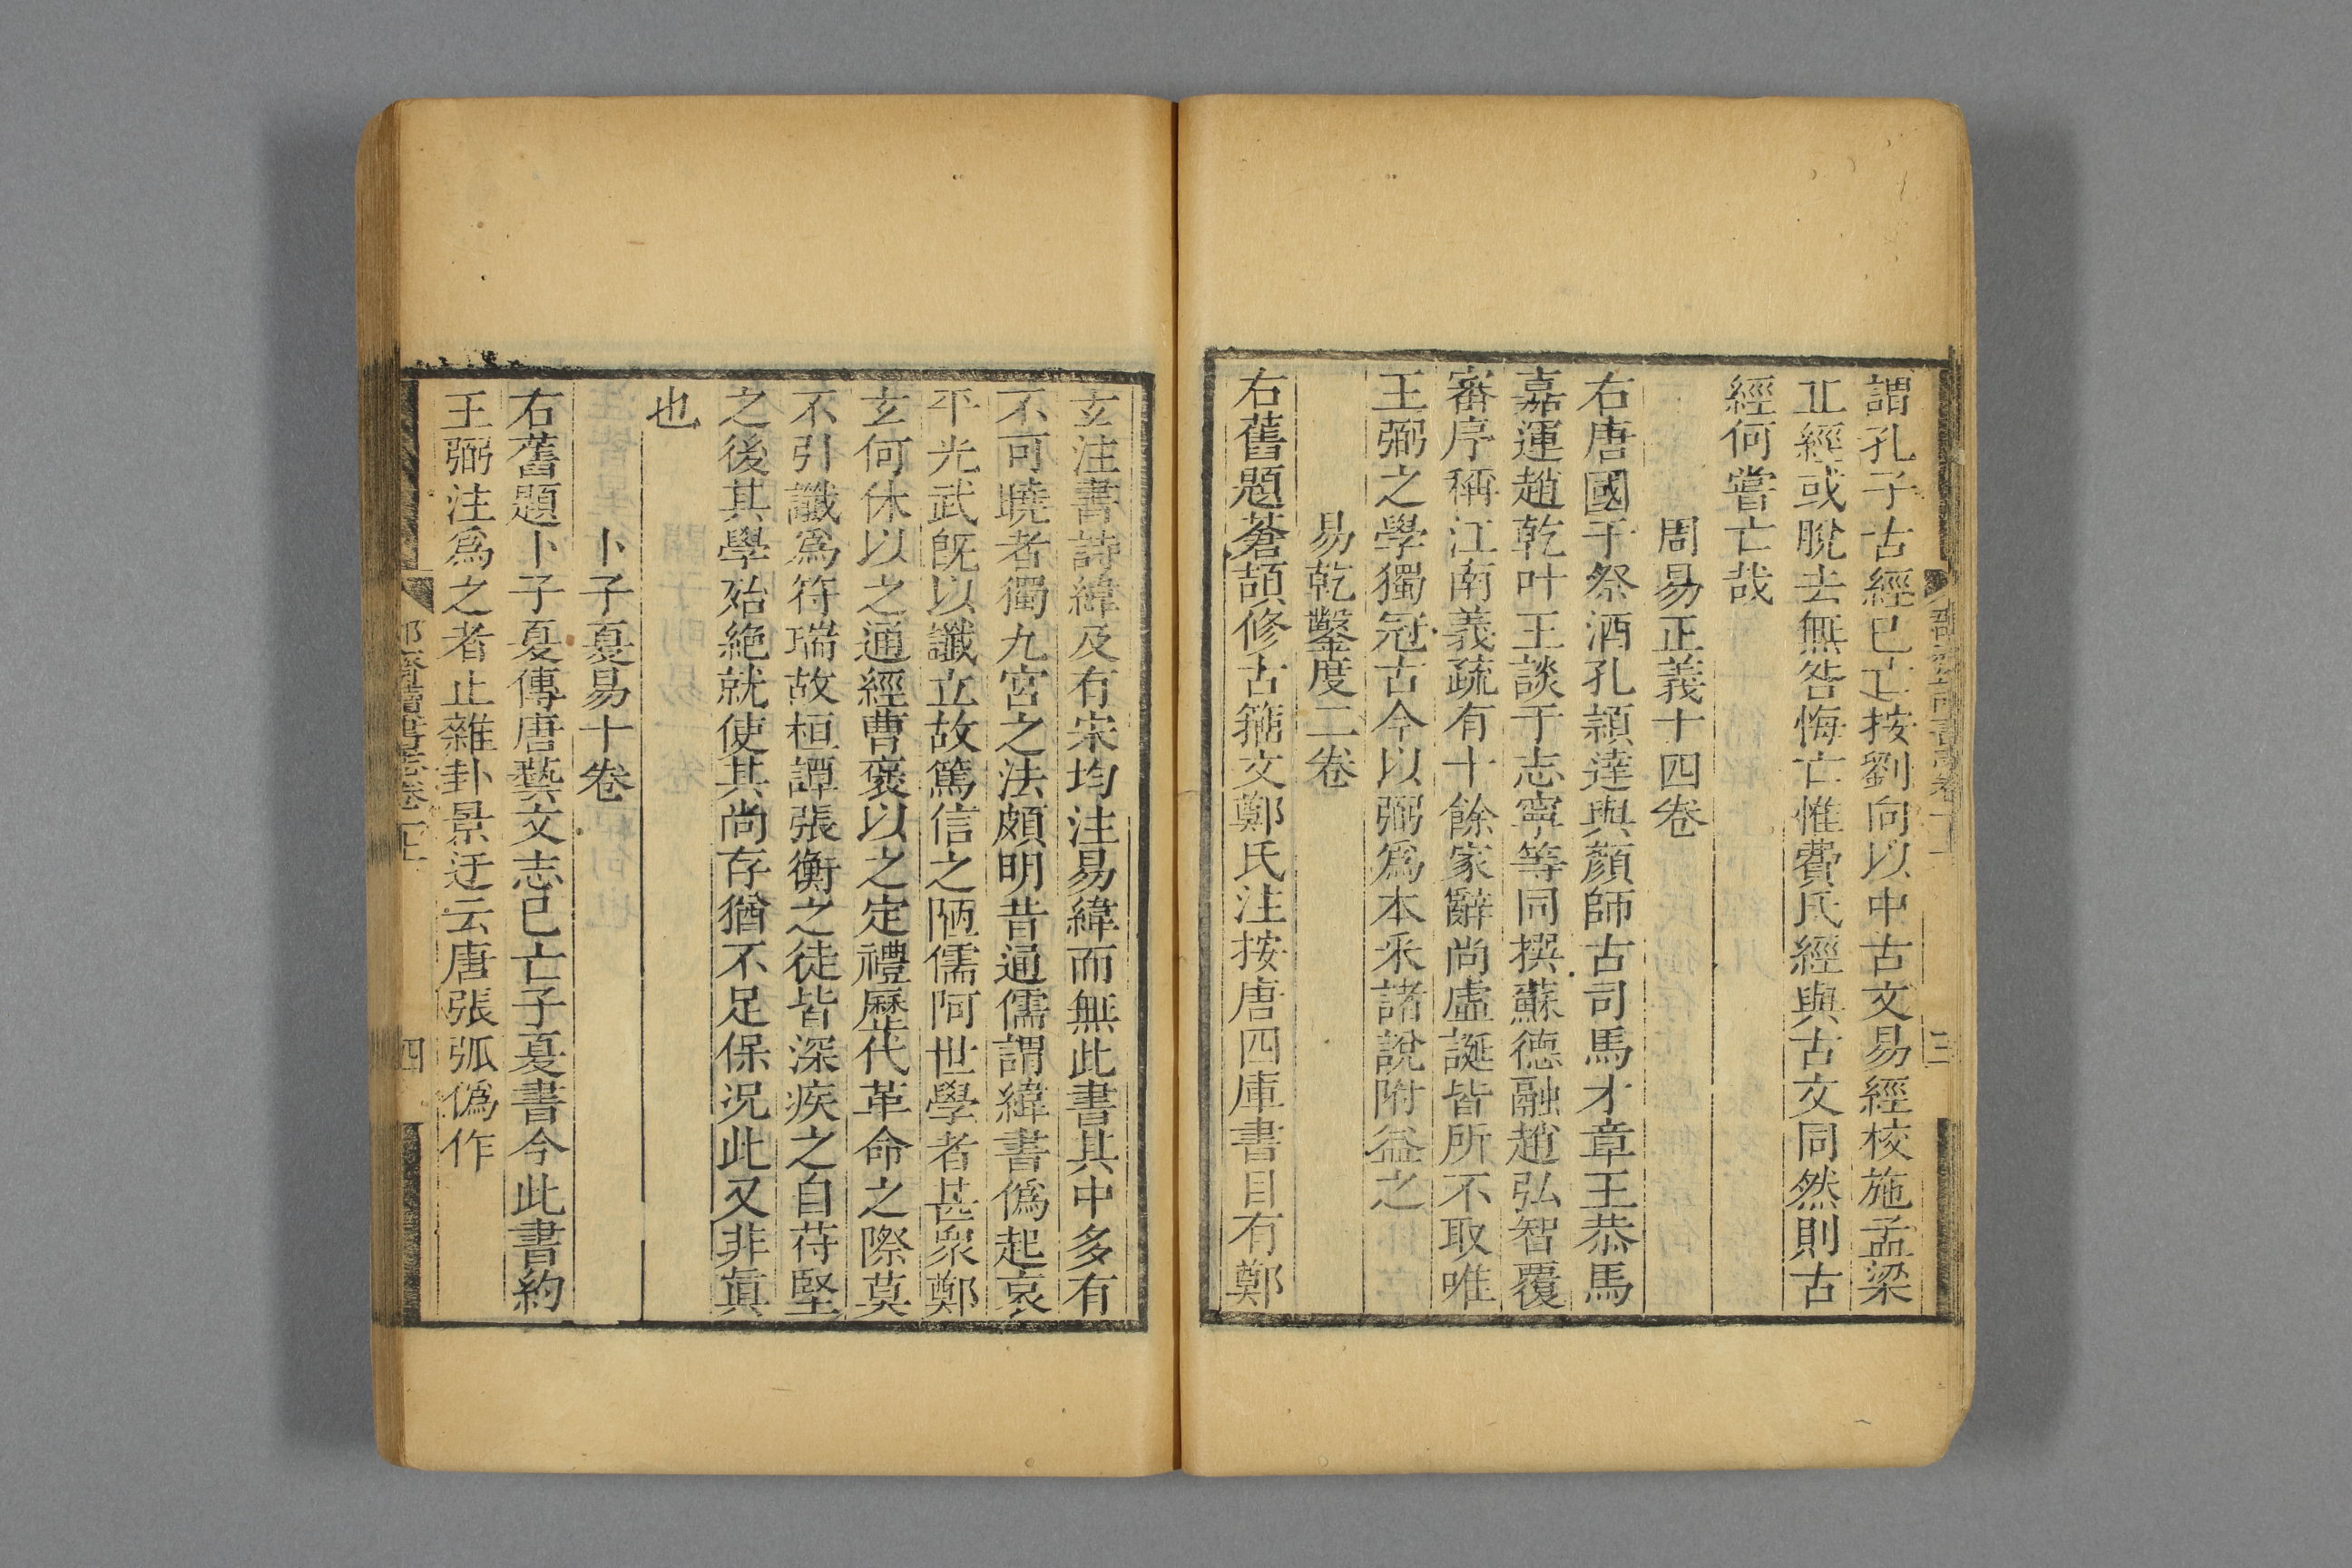 謂孔子古經已亡按劉向以中古文易經校施孟梁
丘經或脫去無咎悔亡惟費氏經與古文同然則古
經何嘗亡哉
周易正義十四卷
右唐國子祭酒孔頴達與顏師古司馬才章王恭馬
嘉運趙乾叶王談于志寧等同撰蘇德融趙弘智覆
審序稱江南義疏有十餘家辭尚虛誕皆所不取唯
王弼之學獨冠古今以弼爲本采諸說附益之
易乾鑿度二卷
右舊題蒼頡修古籀文鄭氏注按唐四庫書目有鄭
玄注書詩緯及有宋均注易緯而無此書其中多有
不可曉者獨九宮之法頗明昔通儒謂緯書僞起哀
平光武旣以讖立故篤信之陋儒阿世學者甚衆鄭
玄何休以之通經曹褒以之定禮歷代革命之際莫
不引讖爲符瑞故桓譚張衡之徒皆深疾之自苻堅
之後其學殆絶就使其尚存猶不足保况此又非眞
也
卜子夏易十卷
右舊題卜子夏傳唐藝文志已亡子夏書今此書約
王弼注爲之者止雜卦景迂云唐張弧僞作
郡齋讀書志卷一上
四